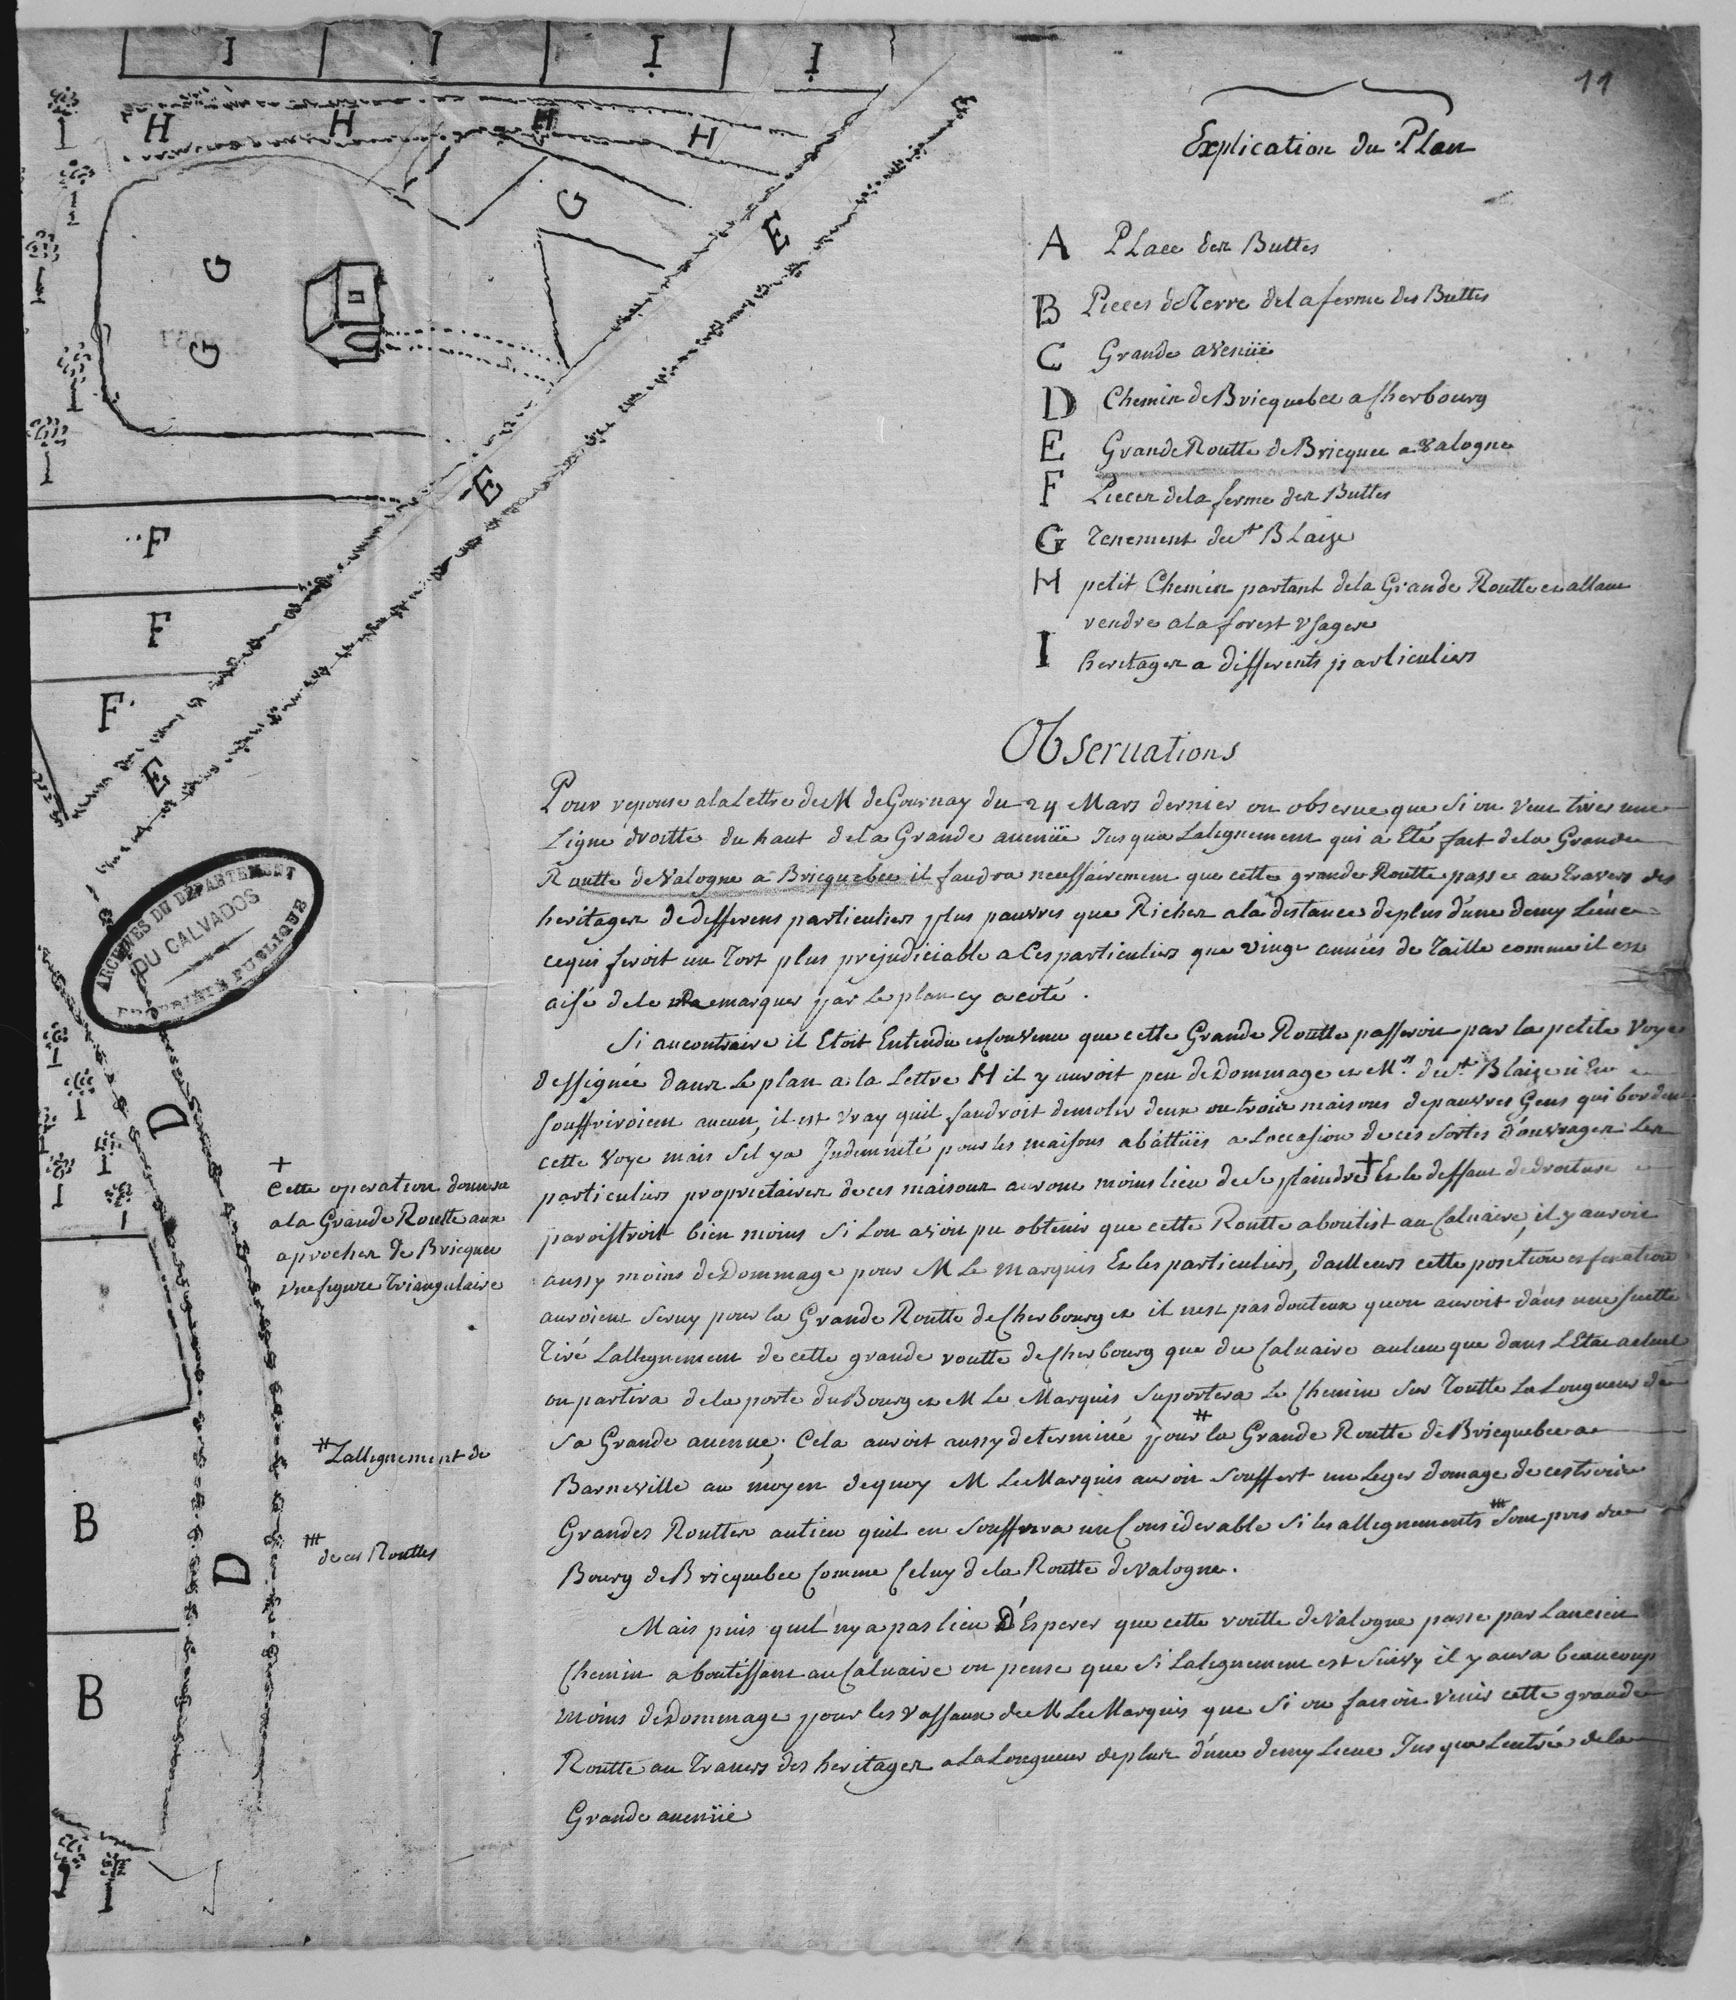 11
Explication du Plan
A Place des Buttes
B Pieces de Terre de la ferme des Buttes
C Grande avenüe
D Chemin de Bricquebec a Cherbourg
E Grande Routte de Bricquec a Valogne
F Pieces de la ferme des Buttes
G Tenement de St Blaize
H petit Chemin partant de la Grande Routte en allant
rendre a la forest Usagere
I heritages a differents particuliers
Observations
Pour reponse a la Lettre de M de Gournay du 24 Mars dernier on observe que si on veut tirer une
Ligne droitte du haut de la Grande avenüe Jusqua Lalignement qui a Eté fait de la Grande
Routte de Valogne a Bricquebec il faudra necessairement que cette grande Routte passe au travers des
heritages de differens particuliers plus pauvres que Riches a la distance de plus d'une demy Lieüe
ce qui feroit un Tort plus prejudiciable a Ces particuliers que vingt années de Taille comme il est
aisé de le remarquer par Le plan cy a coté.
Si au contraire il Etoit Entendu et Convenu que cette Grande Routte passeroit par la petite Voye
dessignée dans Le plan a la Lettre H il y auroit peu de Dommage et Mrs de St Blaize n'En
souffriroient aucun, il est vray quil faudroit demolir deux ou trois maisons de pauvres Gens qui bordent
cette Voye mais sil y a Indemnité pour les maisons abattües a Loccasion de ces sortes d'ouvrages Les
particuliers proprietaires de ces maisons auront moins lieu de se plaindre + Et le deffaut de droiture
paroistroit bien moins si Lon avoit pu obtenir que cette Routte aboutist au Calvaire, il y auroit
aussy moins de Dommage pour M Le Marquis Et les particuliers, dailleurs cette position et
auroient servy pour la Grande Routte de Cherbourg et il nest pas douteux quon auroit dans une suitte
Tiré Lallegnement de cette grande routte de Cherbourg que du Calvaire au lieu que dans LEtat actuel
on partira de la porte du Bourg et M Le Marquis suportera Le Chemin sur Toutte La Longueur de
sa Grande avenue; Cela auroit aussy determiné pour # la Grande Routte de Bricquebec a
Barneville au moyen de quoy M Le Marquis auroit souffert un Leger domage de ces trois
Grandes Routtes au lieu quil en souffrira un Considerable si les allegnements # sont pris du
Bourg de Bricquebec Comme Celuy de la Routte de Valogne.
Mais puis quil ny a pas lieu D'Esperer que cette routte de Valogne passe par Lancien
Chemin aboutissant au Calvaire on pense que si Lalignement est suivy il y aura beaucoup
moins de Dommage pour les Vassaux de M Le Marquis que si on faisoit venir cette grande
Routte au Travers des heritages a La Longueur de plus d'une demy Lieue Jusqua Lentrée de la
Grande avenüe
+
Cette operation donnera
a la Grande Routte aux
aproches de Bricquec
une figure Triangulaire
# Lallegnement de
# de ces Routtes
ARCHIVES DU DEPARTEMENT
DU CALVADOS
PROPRIÉTÉ PUBLIQUE
I I I I
H H H H
I
I
I
I
I
G
G
G
E
E
E
F
F
F
D
D
I
I
I
I
I
B
B
I
I